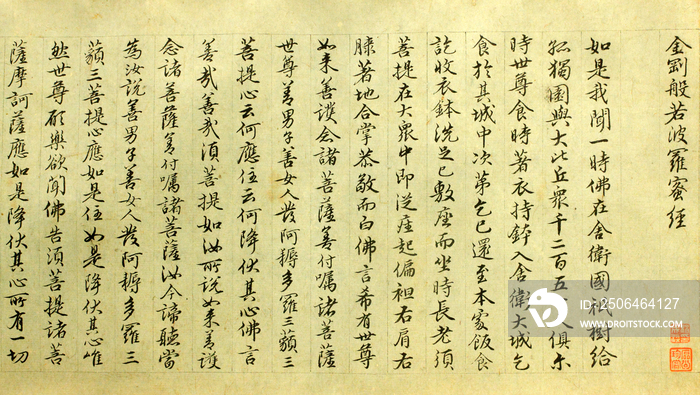 金剛般若波羅蜜經
如是我聞一時佛在舍衛國祇樹給
孤獨園與大比丘眾千二百五十人俱尓
時世尊食時著衣持鉢入舍衛大城乞
食於其城中次第乞已還至本處飯食
訖收衣鉢洗足已敷座而坐時長老須
菩提在大眾中即從座起偏袒右肩右
膝著地合掌恭敬而白佛言希有世尊
如来善護念諸菩薩善付囑諸菩薩
世尊善男子善女人發阿耨多羅三藐三
菩提心云何應住云何降伏其心佛言
善哉善哉須菩提如汝所說如来善護
念諸菩薩善付囑諸菩薩汝今諦聽當
為汝說善男子善女人發阿耨多羅三
藐三菩提心應如是住如是降伏其心唯
然世尊願樂欲聞佛告須菩提諸菩
薩摩訶薩應如是降伏其心所有一切
ID#:2506464127
WWW.DROITSTOCK.COM